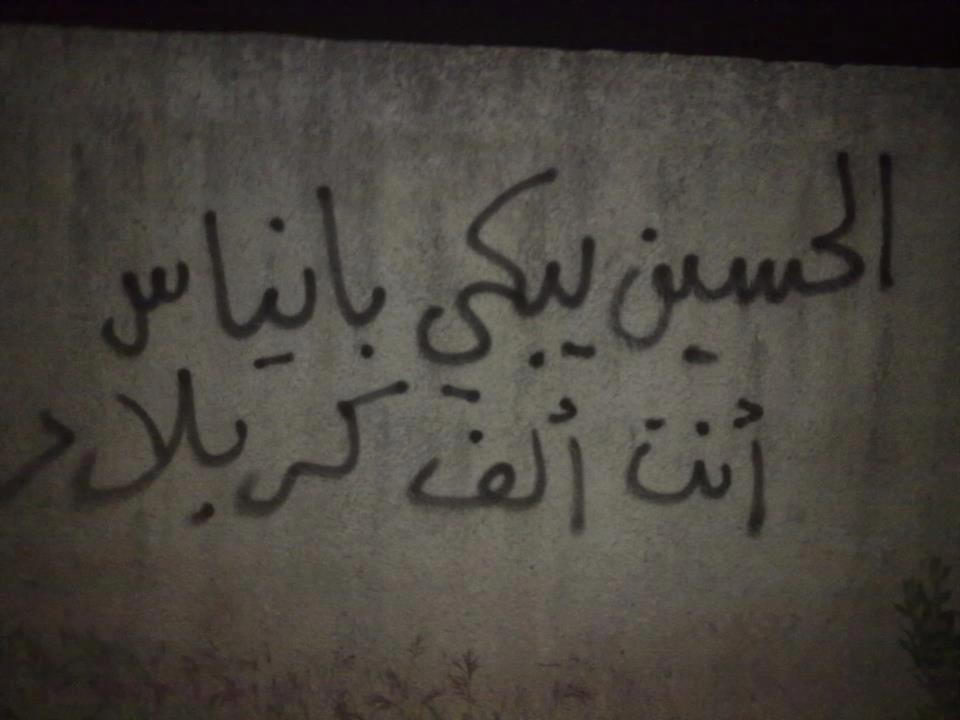 الحسين يبكي بانياس
أنت ألف كربلاء